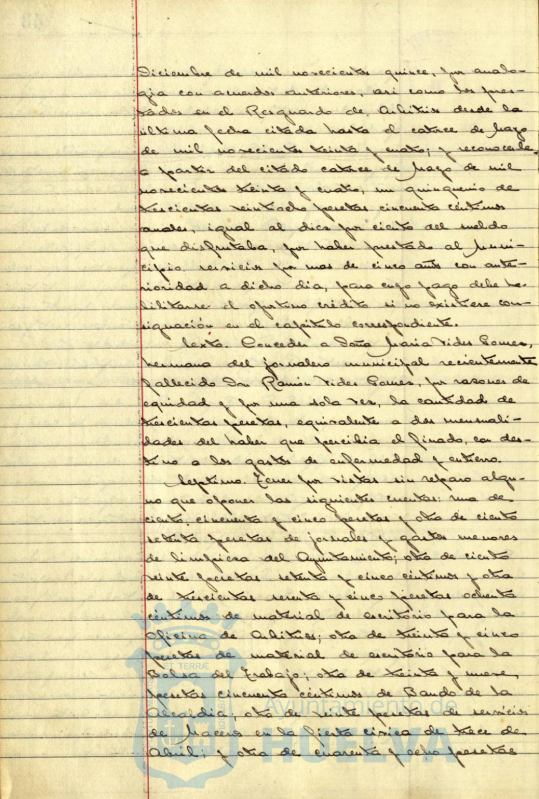 Diciembre de mil novecientos quince, por analo-
gía con acuerdos anteriores, así como los pres-
tados en el Resguardo de Arbitrios desde la
última fecha citada hasta el catorce de Mayo
de mil novecientos treinta y cuatro; y reconocerle
a partir del citado catorce de Mayo de mil
novecientos treinta y cuatro, un quinquenio de
trescientas veintiocho pesetas cincuenta céntimos
anuales, igual al diez por ciento del sueldo
que disfrutaba, por haber prestado al Muni-
cipio servicios por mas de cinco años con ante-
rioridad a dicho día, para cuyo pago debe ha-
bilitarse el oportuno crédito si no existiere con-
signación en el capítulo correspondiente.
Sexto. Conceder a Doña María Vides Gomez,
hermana del jornalero municipal recientemente
fallecido Don Ramón Vides Gomez, por razones de
equidad y por una sola vez, la cantidad de
trescientas pesetas, equivalente a dos mensuali-
dades del haber que percibía el finado, con des-
tino a los gastos de enfermedad y entierro.
Septimo. Tener por vistas sin reparo algu-
no que oponer las siguientes cuentas: una de
ciento cincuenta y cinco pesetas y otra de ciento
setenta pesetas de jornales y gastos menores
de limpieza del Ayuntamiento; otra de ciento
veinte pesetas setenta y cinco céntimos y otra
de trescientas sesenta y cinco pesetas ochenta
céntimos de material de escritorio para la
Oficina de Arbitrios; otra de treinta y cinco
pesetas de material de escritorio para la
Bolsa del Trabajo; otra de treinta y nueve
pesetas cincuenta céntimos de Bando de la
Alcaldía; otra de veinte pesetas de servicio
de Maceros en la fiesta cívica de trece de
Abril; y otra de cuarenta y ocho pesetas
Ayuntamiento de
HUELVA